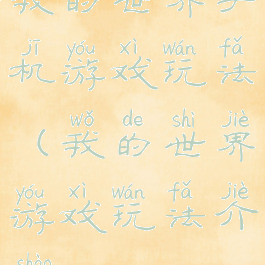 我的世界手
jī yóu xì wán fǎ
机游戏玩法
wǒ de shì jiè
（我的世界
yóu xì wán fǎ jiè
游戏玩法介
shào